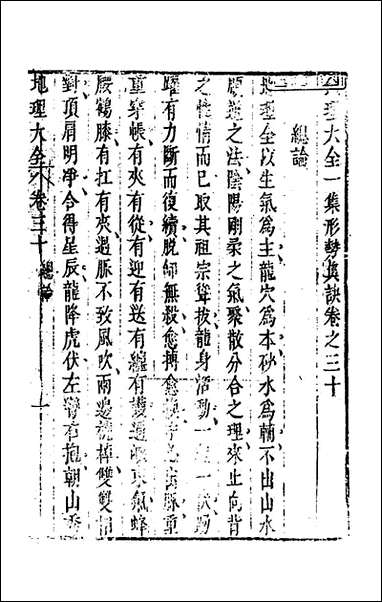 地理大全一集形勢真訣卷之三十
總論
地理全以生氣為主龍穴為本砂水為輔不出山水
之法陰陽剛柔之氣聚散分合之理來止向背
之性情而已取其祖宗聳拔龍身活動一
躍有力斷而復續脫卸無殺愈摶愈
重穿帳有夾有從有迎有送有纏有護過峽束氣蜂
腰鶴膝有扛有夾過脈不致風吹雨
對頂肩明淨合得星辰龍降虎伏左臂右抱朝山秀
地理大全 卷三十 總論 一